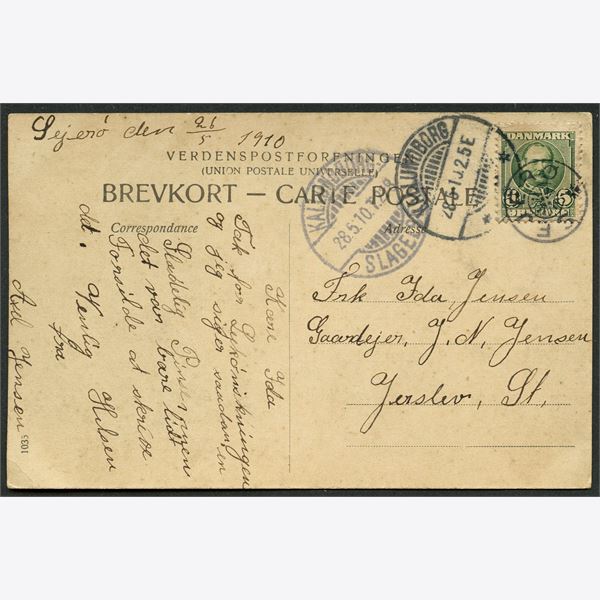 Sejerø den 26/5 1910
VERDENSPOSTFORENINGEN
(UNION POSTALE UNIVERSELLE)
BREVKORT — CARTE POSTALE
Correspondance
Adresse
Kære Ida
Tak for Lykønskningen
og jeg siger saadan en
Glædelig Pinse, igen
det var bare lidt
Forsilde at skrive
det. Venlig Hilsen
fra
Axel Jensen
1035
Frk Ida Jensen
Gaardejer, J. N, Jensen
Jerslev, St.
DANMARK
5
KALUNDBORG
28.5.10.
SLAGELSE
KALUNDBORG
28.5.10. 2.5E